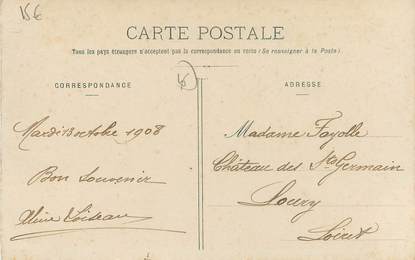 15€
CARTE POSTALE
Tous les pays étrangers n'acceptent pas la correspondance au recto (Se renseigner à la Poste)
CORRESPONDANCE
ADRESSE
Mardi 13 octobre 1908
Bon Souvenir
Madame Fayolle
Château des St Germain
Loury
Loiret